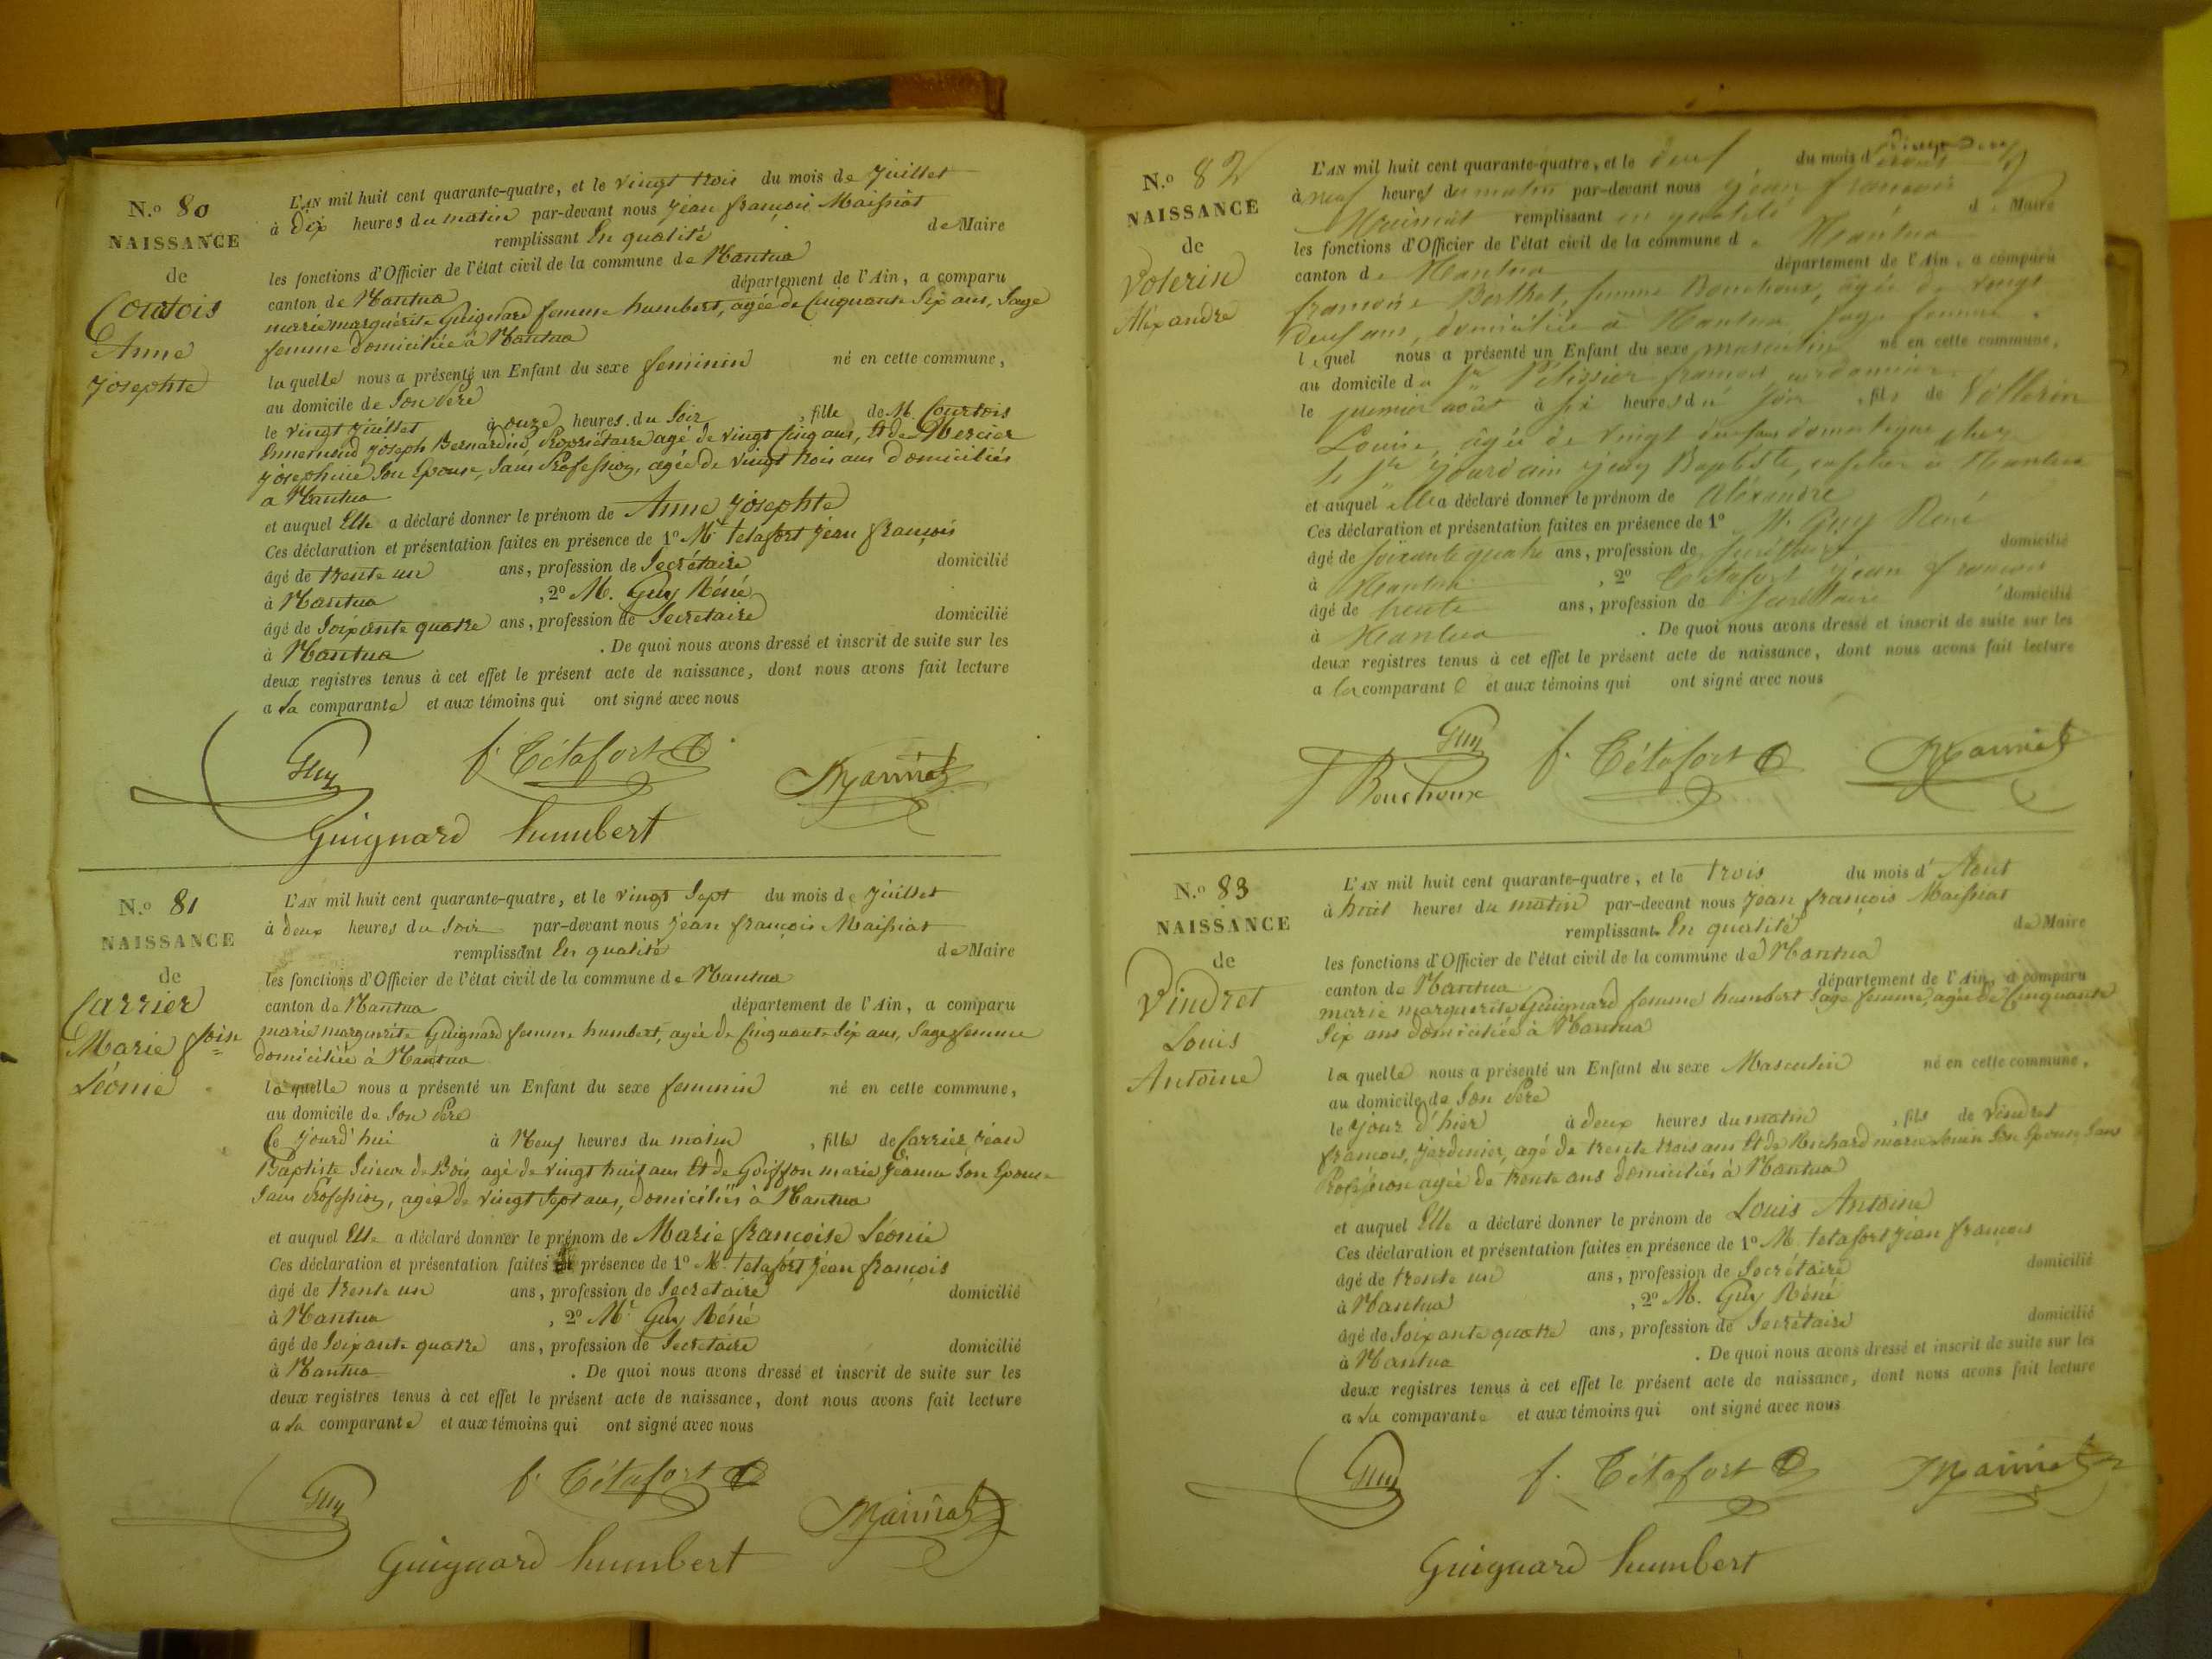 N.º 80
NAISSANCE
de
Courtois
Anne
Josephte
L'AN mil huit cent quarante-quatre, et le vingt trois du mois de Juillet
à dix heures du matin par-devant nous Jean françois Maissiat
remplissant En qualité de Maire
les fonctions d'Officier de l'état civil de la commune de Nantua
canton de Nantua département de l'Ain, a comparu
marie marguerite Guignard femme humbert, agée de Cinquante Six ans, Sage
femme domiciliée à Nantua
laquelle nous a présenté un Enfant du sexe feminin né en cette commune,
au domicile de Son Père
le vingt Juillet à onze heures du Soir, fille de M. Courtois
Ennemond Joseph Bernardin, Propriétaire agé de vingt cinq ans, Et de Mercier
Josephine Son Epouse, Sans Profession, agée de vingt trois ans domiciliés
a Nantua
et auquel Elle a déclaré donner le prénom de Anne Josephte
Ces déclaration et présentation faites en présence de 1º Mr tetafort Jean françois
âgé de trente un ans, profession de Secrétaire domicilié
à Nantua, 2º M. Guy Réné
âgé de Soixante quatre ans, profession de Secretaire domicilié
à Nantua. De quoi nous avons dressé et inscrit de suite sur les
deux registres tenus à cet effet le présent acte de naissance, dont nous avons fait lecture
a la comparante et aux témoins qui ont signé avec nous
Guy f. Tétafort Maissiat
Guignard humbert
N.º 81
NAISSANCE
de
Carrier
Marie fçoise
Léonie
L'AN mil huit cent quarante-quatre, et le vingt Sept du mois de Juillet
à deux heures du Soir par-devant nous Jean françois Maissiat
remplissant En qualité de Maire
les fonctions d'Officier de l'état civil de la commune de Nantua
canton de Nantua département de l'Ain, a comparu
marie marguerite Guignard femme humbert, agée de Cinquante Six ans, Sage femme
domiciliée à Nantua
laquelle nous a présenté un Enfant du sexe feminin né en cette commune,
au domicile de Son Père
Ce Jourd'hui à Neuf heures du matin, fille de Carrier Jean
Baptiste Scieur de Bois, agé de vingt huit ans Et de Goiffon marie Jeanne Son Epouse
Sans Profession, agée de vingt Sept ans, domiciliés à Nantua
et auquel Elle a déclaré donner le prénom de Marie françoise Léonie
Ces déclaration et présentation faites en présence de 1º Mr tetafort Jean françois
âgé de trente un ans, profession de Secretaire domicilié
à Nantua, 2º Mr Guy Réné
âgé de Soixante quatre ans, profession de Secretaire domicilié
à Nantua. De quoi nous avons dressé et inscrit de suite sur les
deux registres tenus à cet effet le présent acte de naissance, dont nous avons fait lecture
a la comparante et aux témoins qui ont signé avec nous
Guy f. Tétafort Maissiat
Guignard humbert
N.º 82
NAISSANCE
de
Volerin
Alexandre
L'AN mil huit cent quarante-quatre, et le deux du mois d'
à neuf heures du matin par-devant nous Jean francois
Maissiat remplissant en qualité de Maire
les fonctions d'Officier de l'état civil de la commune de Nantua
canton de Nantua département de l'Ain, a comparu
françoise Berthet, femme Bouchoux, âgée de vingt
neuf ans, domiciliée à Nantua Sage femme.
lequel nous a présenté un Enfant du sexe masculin né en cette commune,
au domicile du Sr Pelissier francois cordonnier
le premier août à six heures du Soir, fils de Vollerin
Louise, âgée de vingt deux ans domestique chez
le Sr Jourdain Jean Baptiste, cafetier à Nantua
et auquel elle a déclaré donner le prénom de Alexandre
Ces déclaration et présentation faites en présence de 1º M. Guy René
âgé de soixante quatre ans, profession de Secrétaire domicilié
à Nantua, 2º Tétafort Jean François
âgé de trente ans, profession de Secrétaire domicilié
à Nantua. De quoi nous avons dressé et inscrit de suite sur les
deux registres tenus à cet effet le présent acte de naissance, dont nous avons fait lecture
a la comparante et aux témoins qui ont signé avec nous
Guy f. Tétafort Maissiat
f Bouchoux
N.º 83
NAISSANCE
de
Vindret
Louis
Antoine
L'AN mil huit cent quarante-quatre, et le trois du mois d'Aout
à huit heures du matin par-devant nous Jean françois Maissiat
remplissant En qualité de Maire
les fonctions d'Officier de l'état civil de la commune de Nantua
canton de Nantua département de l'Ain, a comparu
marie marguerite Guignard femme humbert Sage femme, agée de Cinquante
Six ans domiciliée à Nantua
laquelle nous a présenté un Enfant du sexe Masculin né en cette commune,
au domicile de Son Père
le Jour d'hier à deux heures du matin, fils de Vindret
françois, Jardinier, agé de trente trois ans Et de Michard marie Louise Son Epouse Sans
Profession agée de trente ans domiciliés à Nantua
et auquel Elle a déclaré donner le prénom de Louis Antoine
Ces déclaration et présentation faites en présence de 1º M. tetafort Jean françois
âgé de trente un ans, profession de Secrétaire domicilié
à Nantua, 2º M. Guy Réné
âgé de Soixante quatre ans, profession de Secrétaire domicilié
à Nantua. De quoi nous avons dressé et inscrit de suite sur les
deux registres tenus à cet effet le présent acte de naissance, dont nous avons fait lecture
a la comparante et aux témoins qui ont signé avec nous
Guy f. Tétafort Maissiat
Guignard humbert